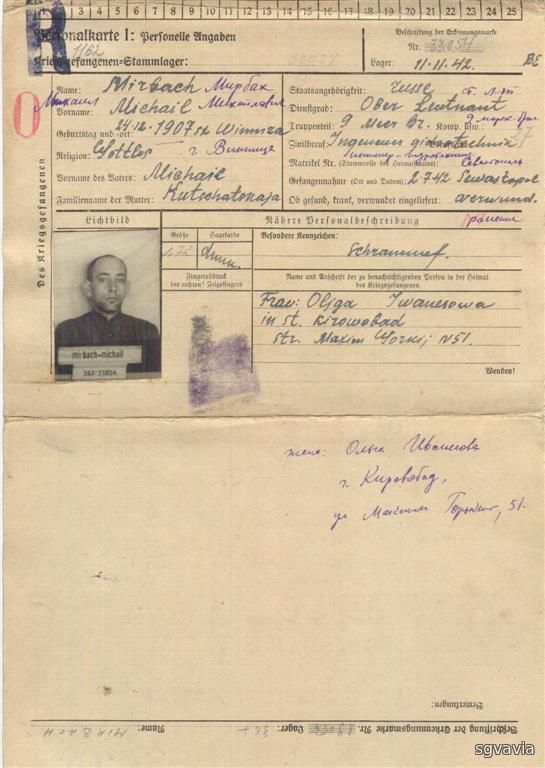 1 2 3 4 5 6 7 8 9 10 11 12 13 14 15 16 17 18 19 20 21 22 23 24 25
R
1162
Personalkarte I: Personelle Angaben
Kriegsgefangenen-Stammlager:
Beschriftung der Erkennungsmarke
Nr. 33054
Lager: 11.11.42.
Des Kriegsgefangenen
Name: Mirbach Мирбах
Михаил Vorname: Michail Михайлович
Geburtstag und -ort: 24.12.1907 Winniza
Religion: Gottlos г. Винница
Vorname des Vaters: Michail
Familienname der Mutter: Kutschatskaja
Staatsangehörigkeit: Russe
Dienstgrad: Ober Leutnant ст. л-т
Truppenteil: 9 Meer Br. Komp. usw.:
Zivilberuf: Ingenieur gidrotechnik
Matrikel Nr. (Stammrolle des Heimatstaates) Севастополь
Gefangennahme (Ort und Datum): 2.7.42 Sewastopol
Ob gesund, krank, verwundet eingeliefert: verwund.
ранения
Lichtbild
Nähere Personalbeschreibung
Größe
Haarfarbe
Besondere Kennzeichen:
1,72
Schramme
Fingerabdruck
des rechten! Zeigefingers
Name und Anschrift der zu benachrichtigenden Person in der Heimat
des Kriegsgefangenen
Frau: Oljga Iwanesowa
in st. Kirowobad
str. Maxim Gorkij N 51.
mirbach-michail
367/33054
Wenden!
жена: Ольга Иванесова
г. Кировобад,
ул Максим Горький, 51.
Bemerkungen:
Beschriftung der Erkennungsmarke Nr. 33054 Lager: 367 Name: MIRBACH
sgvavia